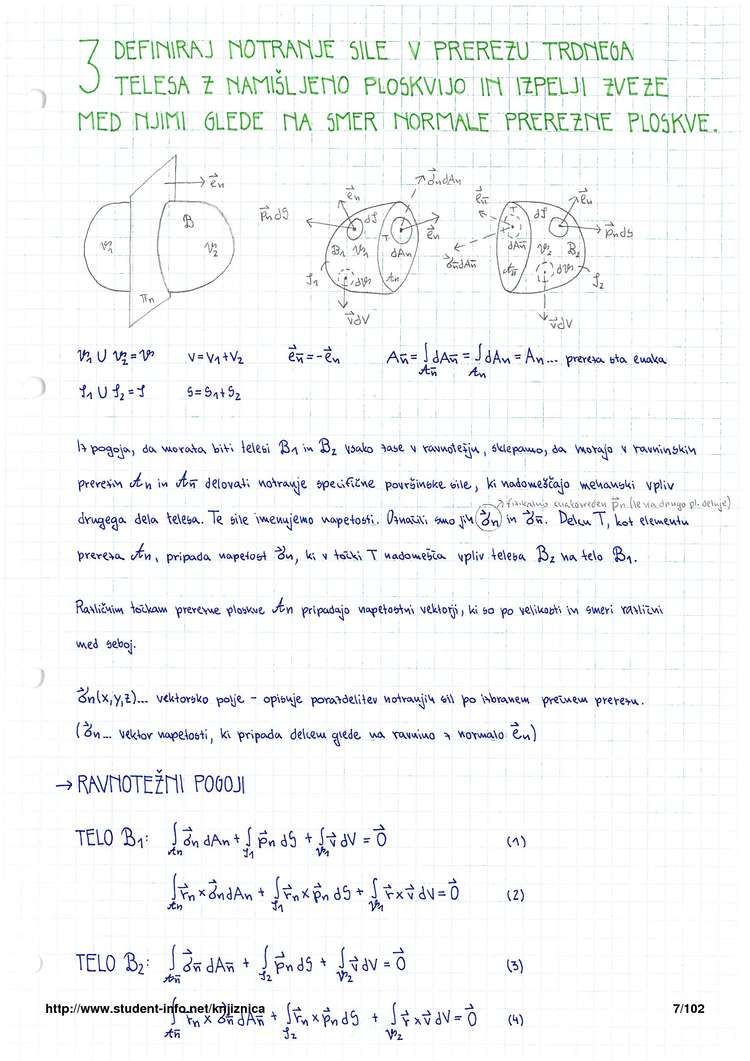 3 DEFINIRAJ NOTRANJE SILE V PREREZU TRDNEGA
TELESA Z NAMIŠLJENO PLOSKVIJO IN IZPELJI ZVEZE
MED NJIMI GLEDE NA SMER NORMALE PREREZNE PLOSKVE.
e⃗n
B
𝒱1
𝒱2
πn
p⃗n dS
e⃗n
dS
σ⃗n dAn
T
e⃗n
B1 𝒱1
dAn
𝒮1
d𝒱
𝒜n
v⃗ dV
e⃗n̄
T
dS
e⃗n
p⃗n dS
dAn̄
𝒱2
B2
σ⃗n̄ dAn̄
𝒜n̄
d𝒱
𝒮2
v⃗ dV
𝒱1 ∪ 𝒱2 = 𝒱 V = V1 + V2 e⃗n̄ = −e⃗n An̄ = ∫𝒜n̄ dAn̄ = ∫𝒜n dAn = An ... prereza sta enaka
𝒮1 ∪ 𝒮2 = 𝒮 S = S1 + S2
Iz pogoja, da morata biti telesi B1 in B2 vsako zase v ravnotežju, sklepamo, da morajo v ravninskih
prerezih 𝒜n in 𝒜n̄ delovati notranje specifične površinske sile, ki nadomeščajo mehanski vpliv
→ fizikalno enakovreden p⃗n (le na drugo pl. deluje)
drugega dela telesa. Te sile imenujemo napetosti. Označili smo jih σ⃗n in σ⃗n̄. Delcu T, kot elementu
prereza 𝒜n, pripada napetost σ⃗n, ki v točki T nadomešča vpliv telesa B2 na telo B1.
Različnim točkam prerezne ploskve 𝒜n pripadajo napetostni vektorji, ki so po velikosti in smeri različni
med seboj.
σ⃗n(x,y,z)... vektorsko polje - opisuje porazdelitev notranjih sil po izbranem prečnem prerezu.
(σ⃗n ... vektor napetosti, ki pripada delcem glede na ravnino z normalo e⃗n)
→ RAVNOTEŽNI POGOJI
TELO B1: ∫𝒜n σ⃗n dAn + ∫𝒮1 p⃗n dS + ∫𝒱1 v⃗ dV = 0⃗ (1)
∫𝒜n r⃗n × σ⃗n dAn + ∫𝒮1 r⃗n × p⃗n dS + ∫𝒱1 r⃗ × v⃗ dV = 0⃗ (2)
TELO B2: ∫𝒜n̄ σ⃗n̄ dAn̄ + ∫𝒮2 p⃗n dS + ∫𝒱2 v⃗ dV = 0⃗ (3)
∫𝒜n̄ r⃗n × σ⃗n̄ dAn̄ + ∫𝒮2 r⃗n × p⃗n dS + ∫𝒱2 r⃗ × v⃗ dV = 0⃗ (4)
http://www.student-info.net/knjiznica 7/102